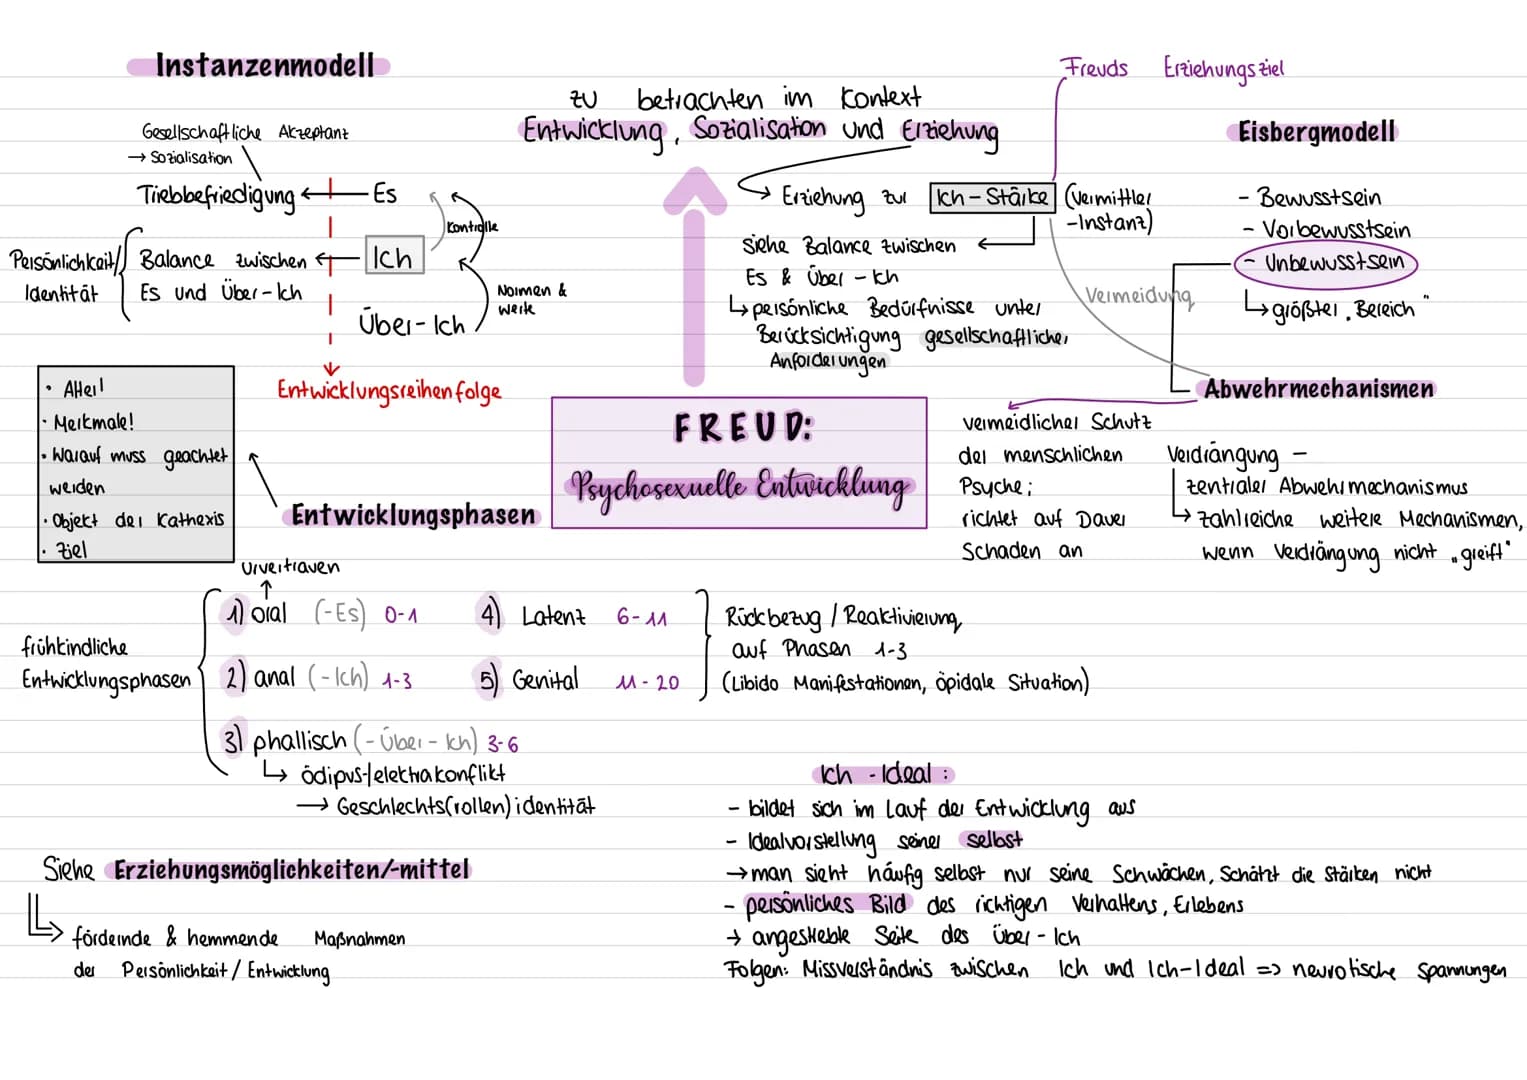 Instanzenmodell
Gesellschaftliche Akzeptanz
→ Sozialisation
Triebbefriedigung
Es
Kontrolle
Persönlichkeit/
Identität
Balance zwischen
Es und Über-Ich
Ich
Normen &
Werte
Über-Ich
Entwicklungsreihenfolge
zu betrachten im Kontext
Entwicklung, Sozialisation und Erziehung
Freuds Erziehungsziel
Erziehung zur Ich-Stärke (Vermittler
-Instanz)
siehe Balance zwischen
Es & Über-Ich
↳ persönliche Bedürfnisse unter
Berücksichtigung gesellschaftlicher
Anforderungen
Vermeidung
Eisbergmodell
- Bewusstsein
- Vorbewusstsein
- Unbewusstsein
↳ größter „Bereich"
Abwehrmechanismen
vermeidlicher Schutz
der menschlichen
Psyche;
richtet auf Dauer
Schaden an
Verdrängung -
zentraler Abwehrmechanismus
↳ zahlreiche weitere Mechanismen,
wenn Verdrängung nicht „greift"
FREUD:
Psychosexuelle Entwicklung
• Alter!
• Merkmale!
• Worauf muss geachtet
werden
• Objekt der Kathexis
• Ziel
Entwicklungsphasen
Urvertrauen
frühkindliche
Entwicklungsphasen
1) oral (-Es) 0-1
2) anal (-Ich) 1-3
3) phallisch (-Über-Ich) 3-6
↳ Ödipus-/elektrakonflikt
→ Geschlechts(rollen)identität
4) Latenz 6-11
5) Genital 11-20
Rückbezug / Reaktivierung
auf Phasen 1-3
(Libido Manifestationen, öpidale Situation)
Siehe Erziehungsmöglichkeiten/-mittel
↳ fördernde & hemmende Maßnahmen
der Persönlichkeit / Entwicklung
Ich-Ideal:
- bildet sich im Lauf der Entwicklung aus
- Idealvorstellung seiner selbst
→ man sieht häufig selbst nur seine Schwächen, Schätzt die Stärken nicht
- persönliches Bild des richtigen Verhaltens, Erlebens
→ angestrebte Seite des Über-Ich
Folgen: Missverständnis zwischen Ich und Ich-Ideal => neurotische Spannungen